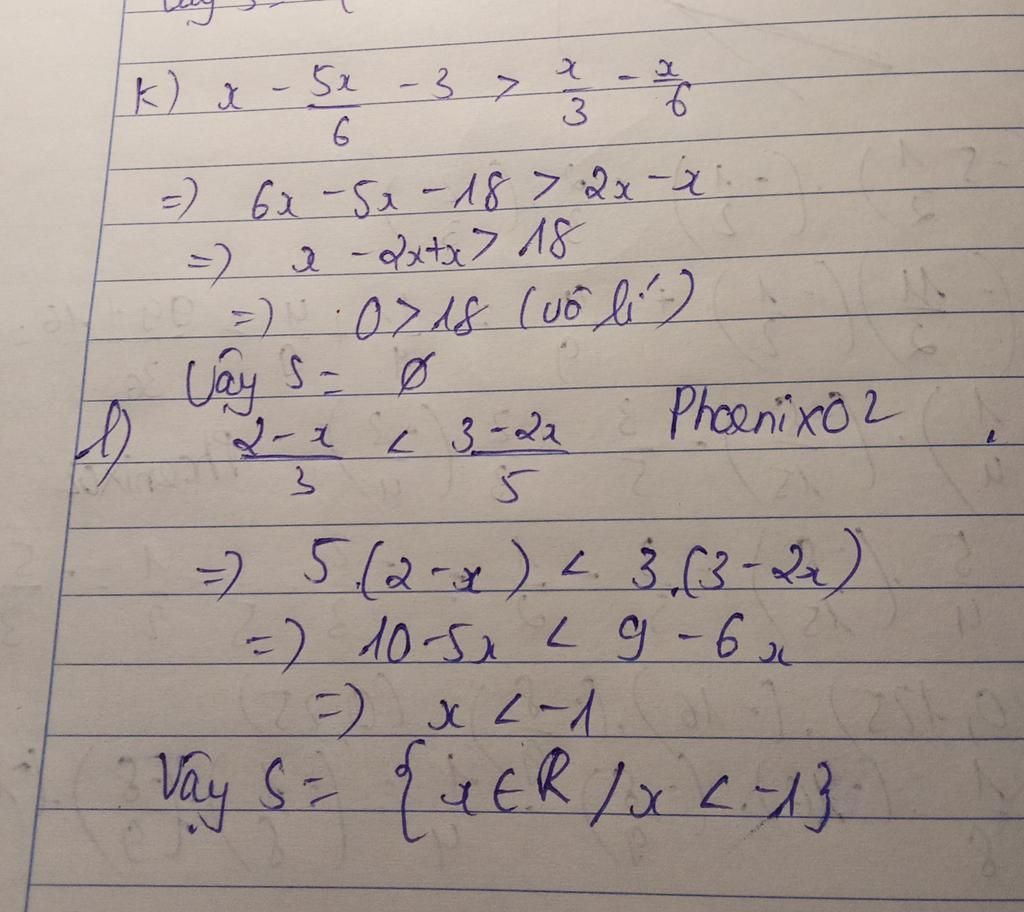 k) x - 5x/6 - 3 > x/3 - x/6
=) 6x - 5x - 18 > 2x - x
=) x - 2x + x > 18
=) 0 > 18 (vô lí)
Vậy S = ∅
l) 2-x/3 < 3-2x/5 Phoenix02
=) 5.(2-x) < 3.(3-2x)
=) 10-5x < 9-6x
=) x < -1
Vậy S = {x ∈ R / x < -1}